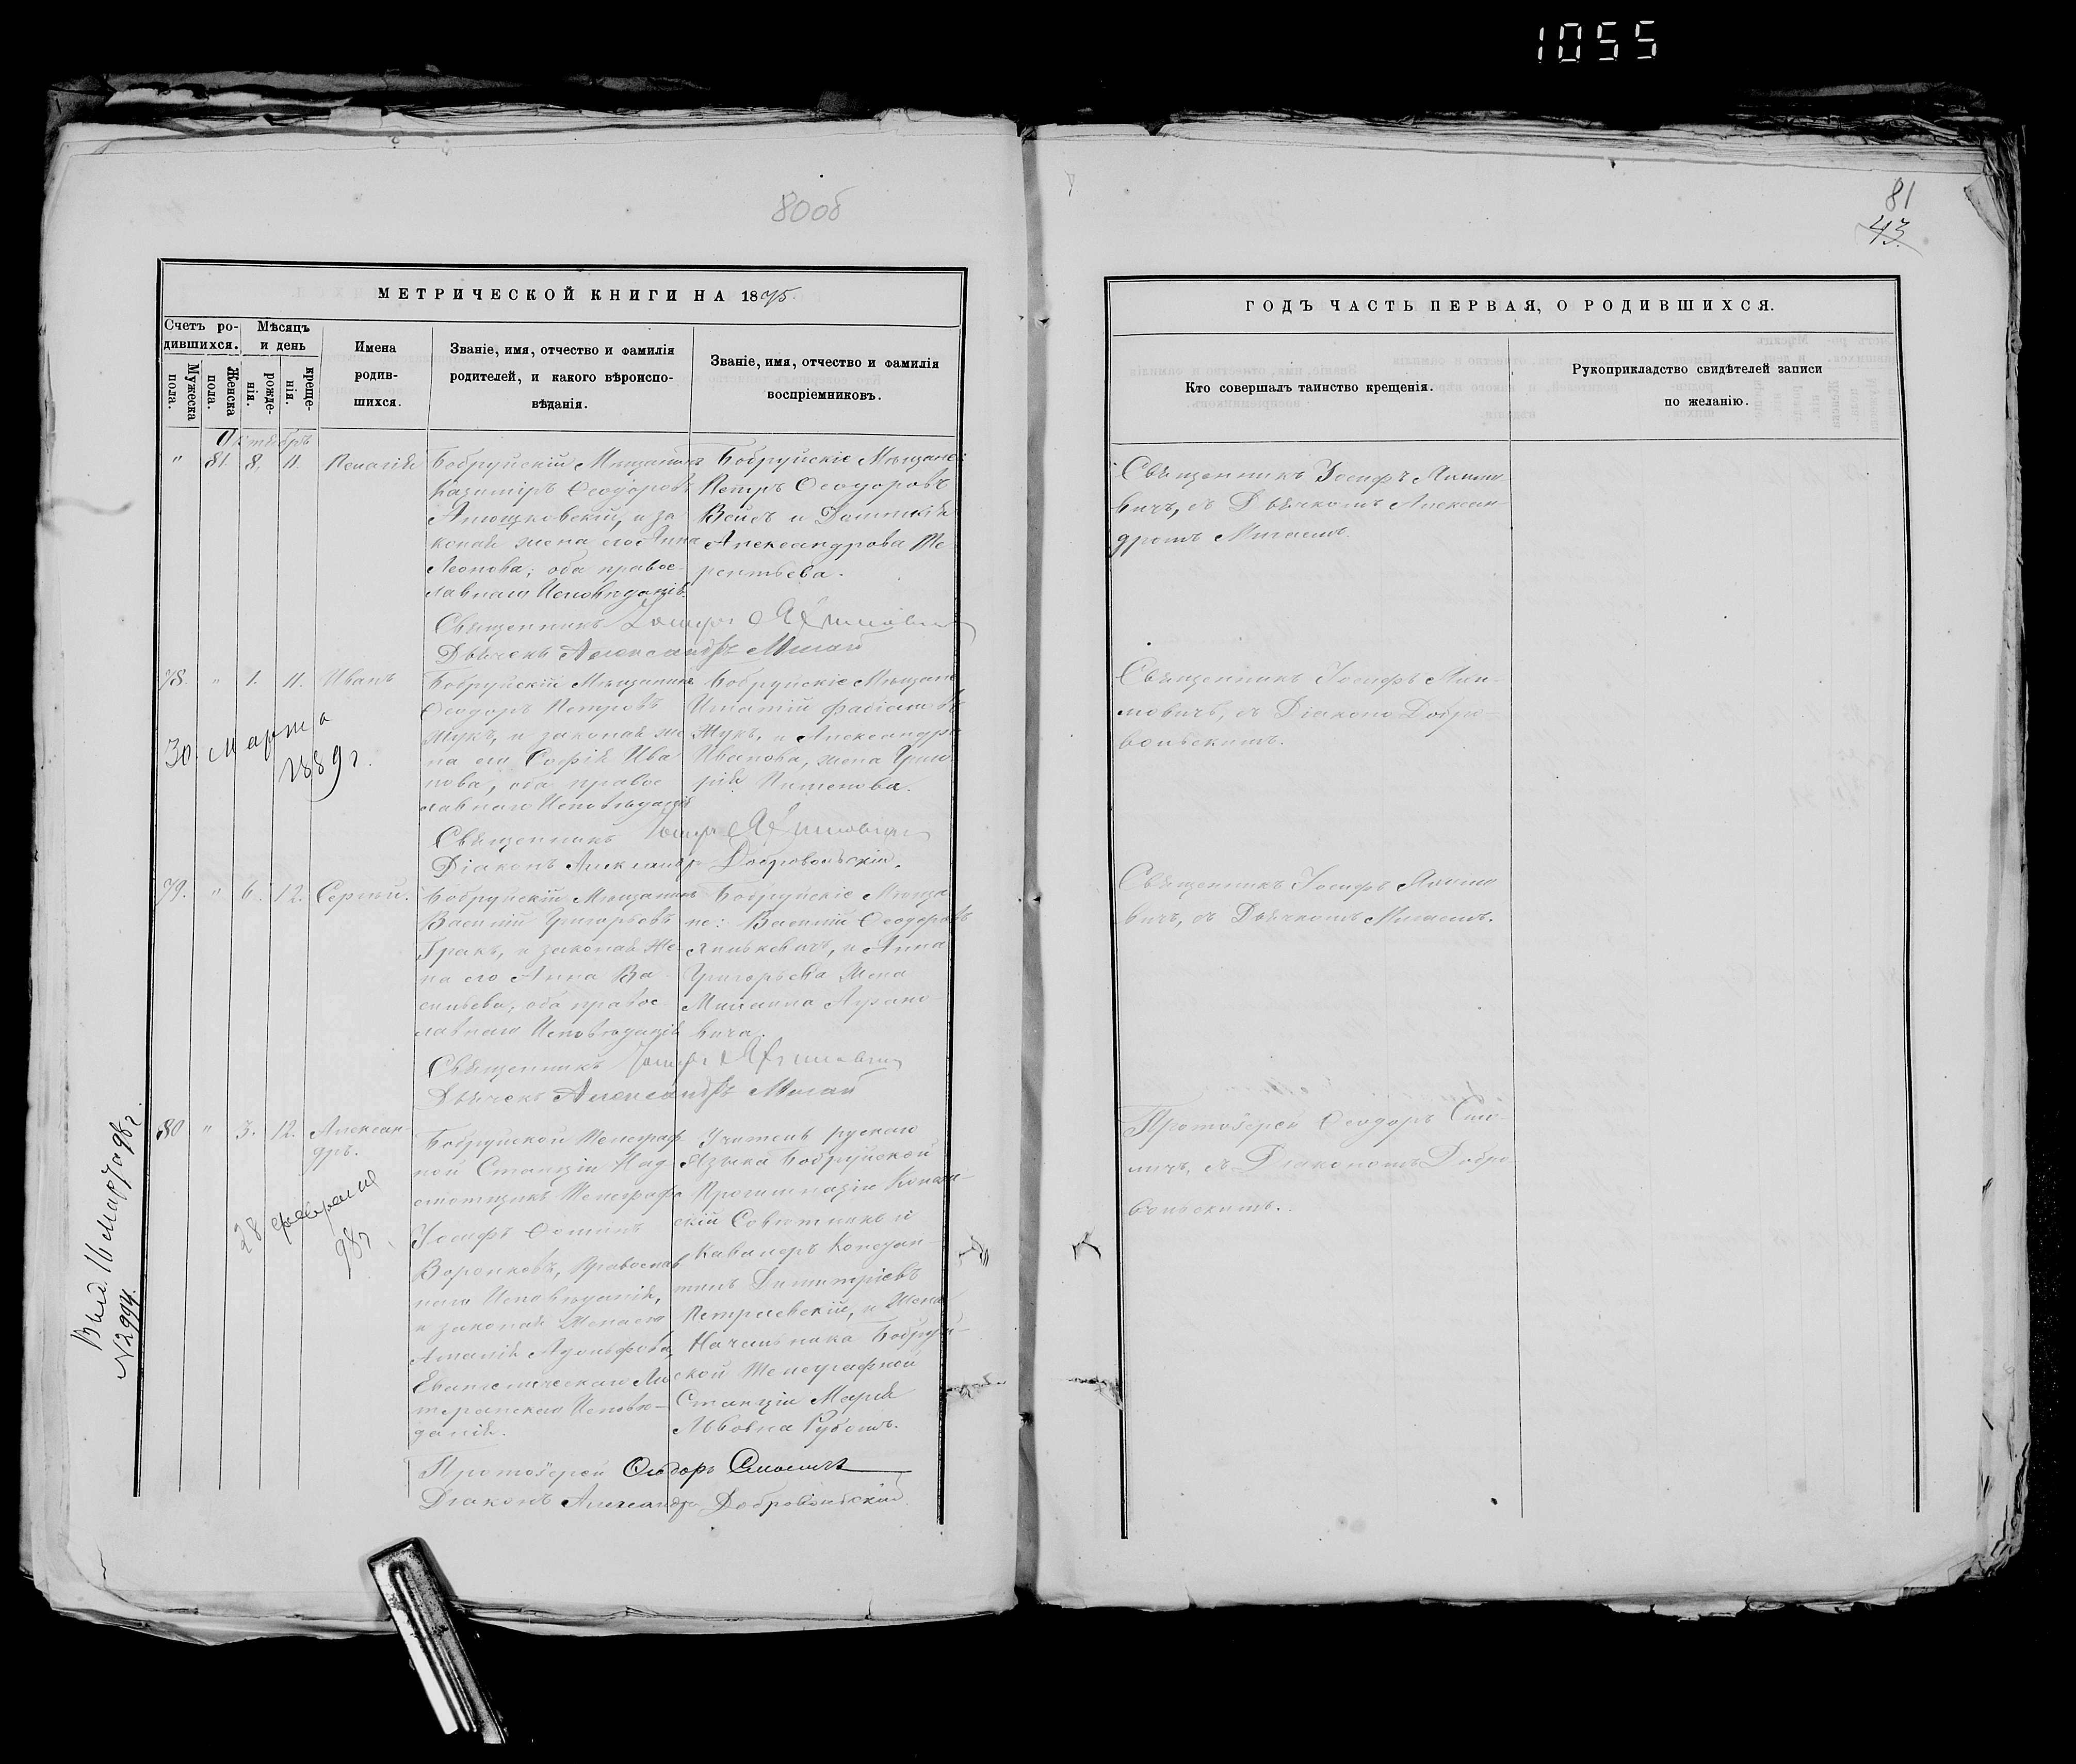 1055
80об
81
43.
МЕТРИЧЕСКОЙ КНИГИ НА 1875.
Счетъ ро-
дившихся.
Мужеска
пола.
Женска
пола.
Мѣсяцъ
и день
рожде-
нія.
креще-
нія.
Имена
родив-
шихся.
Званіе, имя, отчество и фамилія
родителей, и какого вѣроиспо-
вѣданія.
Званіе, имя, отчество и фамилія
воспріемниковъ.
Октябрь
" 81. 8. 11. Пелагія
Бобруйскій Мѣщанинъ
Казиміръ Ѳеодоровъ
и за
конная жена его Анна
Леонова; оба правос-
лавнаго Исповѣданія.
Бобруйскіе Мѣщане:
Петръ Ѳеодоровъ
Войсъ и Домникія
Александрова Те
рентьева.
Священникъ Іосифъ Якимовичъ
Дьячекъ Александръ Мигай
78. " 1. 11. Иванъ
30 Марта
1889 г.
Бобруйскій Мѣщанинъ
Ѳеодоръ Петровъ
Жукъ, и законная же
на его Софія Ива
нова, оба правос
лавнаго Исповѣданія
Бобруйскіе Мѣщане
Игнатій Фабіановъ
Жукъ, и Александра
Иванова, жена Григо
рія Пименова.
Священникъ Іосифъ Якимовичъ
Діаконъ Александръ Добровольскій.
79. " 6. 12. Сергѣй.
Бобруйскій Мѣщанинъ
Василій Григорьевъ
Гракъ, и законная Же-
на его Анна Ва
сильева, оба правос-
лавнаго Исповѣданія
Бобруйскіе Мѣща
не: Василій Ѳеодоровъ
и Анна
Григорьева Жена
Михаила
вича.
Священникъ Іосифъ Якимовичъ
Дьячекъ Александръ Мигай
80 " 3. 12. Алексан-
дръ.
28 февраля
98 г.
Выд. 16 марта 98 г.
№ 2994.
Бобруйской Телеграф
ной Станціи Над
смотрщикъ Телеграфа
Іосифъ Ѳоминъ
Воронковъ, Православ
наго Исповѣданія,
и законная Жена его
Амалія Адольфова,
Евангелическаго Лю
теранскаго Исповѣ-
данія.
Учитель рускаго
Языка Бобруйской
Прогимназіи Колле-
скій Совѣтникъ и
Кавалеръ Констан-
тинъ Димитріевъ
Петришевскій, и Жена
Начальника Бобруй-
ской Телеграфной
Станціи Марія
Львовна
Протоіерей Ѳеодоръ Смоличъ
Діаконъ Александръ Добровольскій
ГОДЪ ЧАСТЬ ПЕРВАЯ, О РОДИВШИХСЯ.
Кто совершалъ таинство крещенія.
Рукоприкладство свидѣтелей записи
по желанію.
Священникъ Іосифъ Якимо-
вичъ, съ Дьячкомъ Алексан-
дромъ Мигаемъ.
Священникъ Іосифъ Яки-
мовичъ, съ Діакономъ Добро-
вольскимъ.
Священникъ Іосифъ Якимо
вичъ, съ Дьячкомъ Мигаемъ.
Протоіерей Ѳеодоръ Смо-
личъ, съ Діакономъ Добро-
вольскимъ.